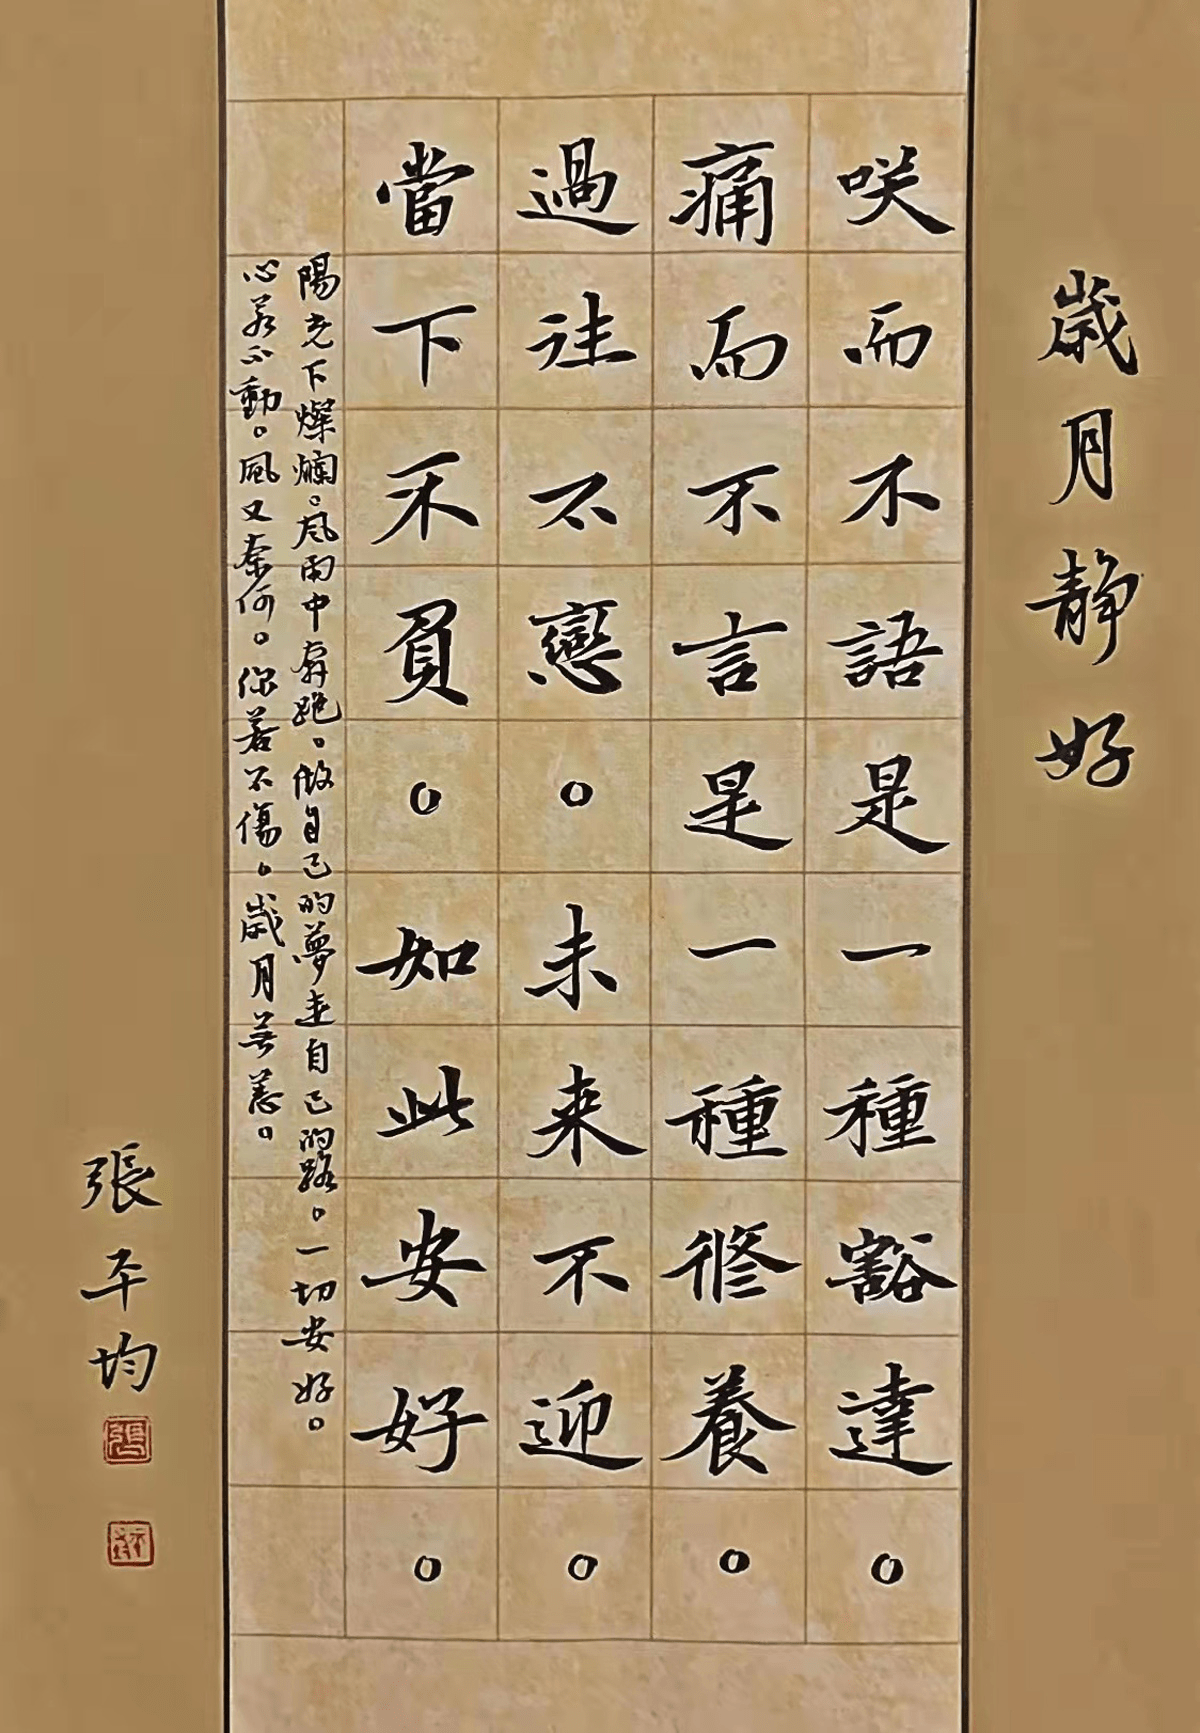 歲月静好
咲而不語是一種豁達。
痛而不言是一種修養。
過往不戀。未来不迎。
當下不負。如此安好。
陽光下燦爛。風雨中奔跑。做自己的夢走自己的路。一切安好。
心若不動。風又奈何。你若不傷。歲月無恙。
張平均
張